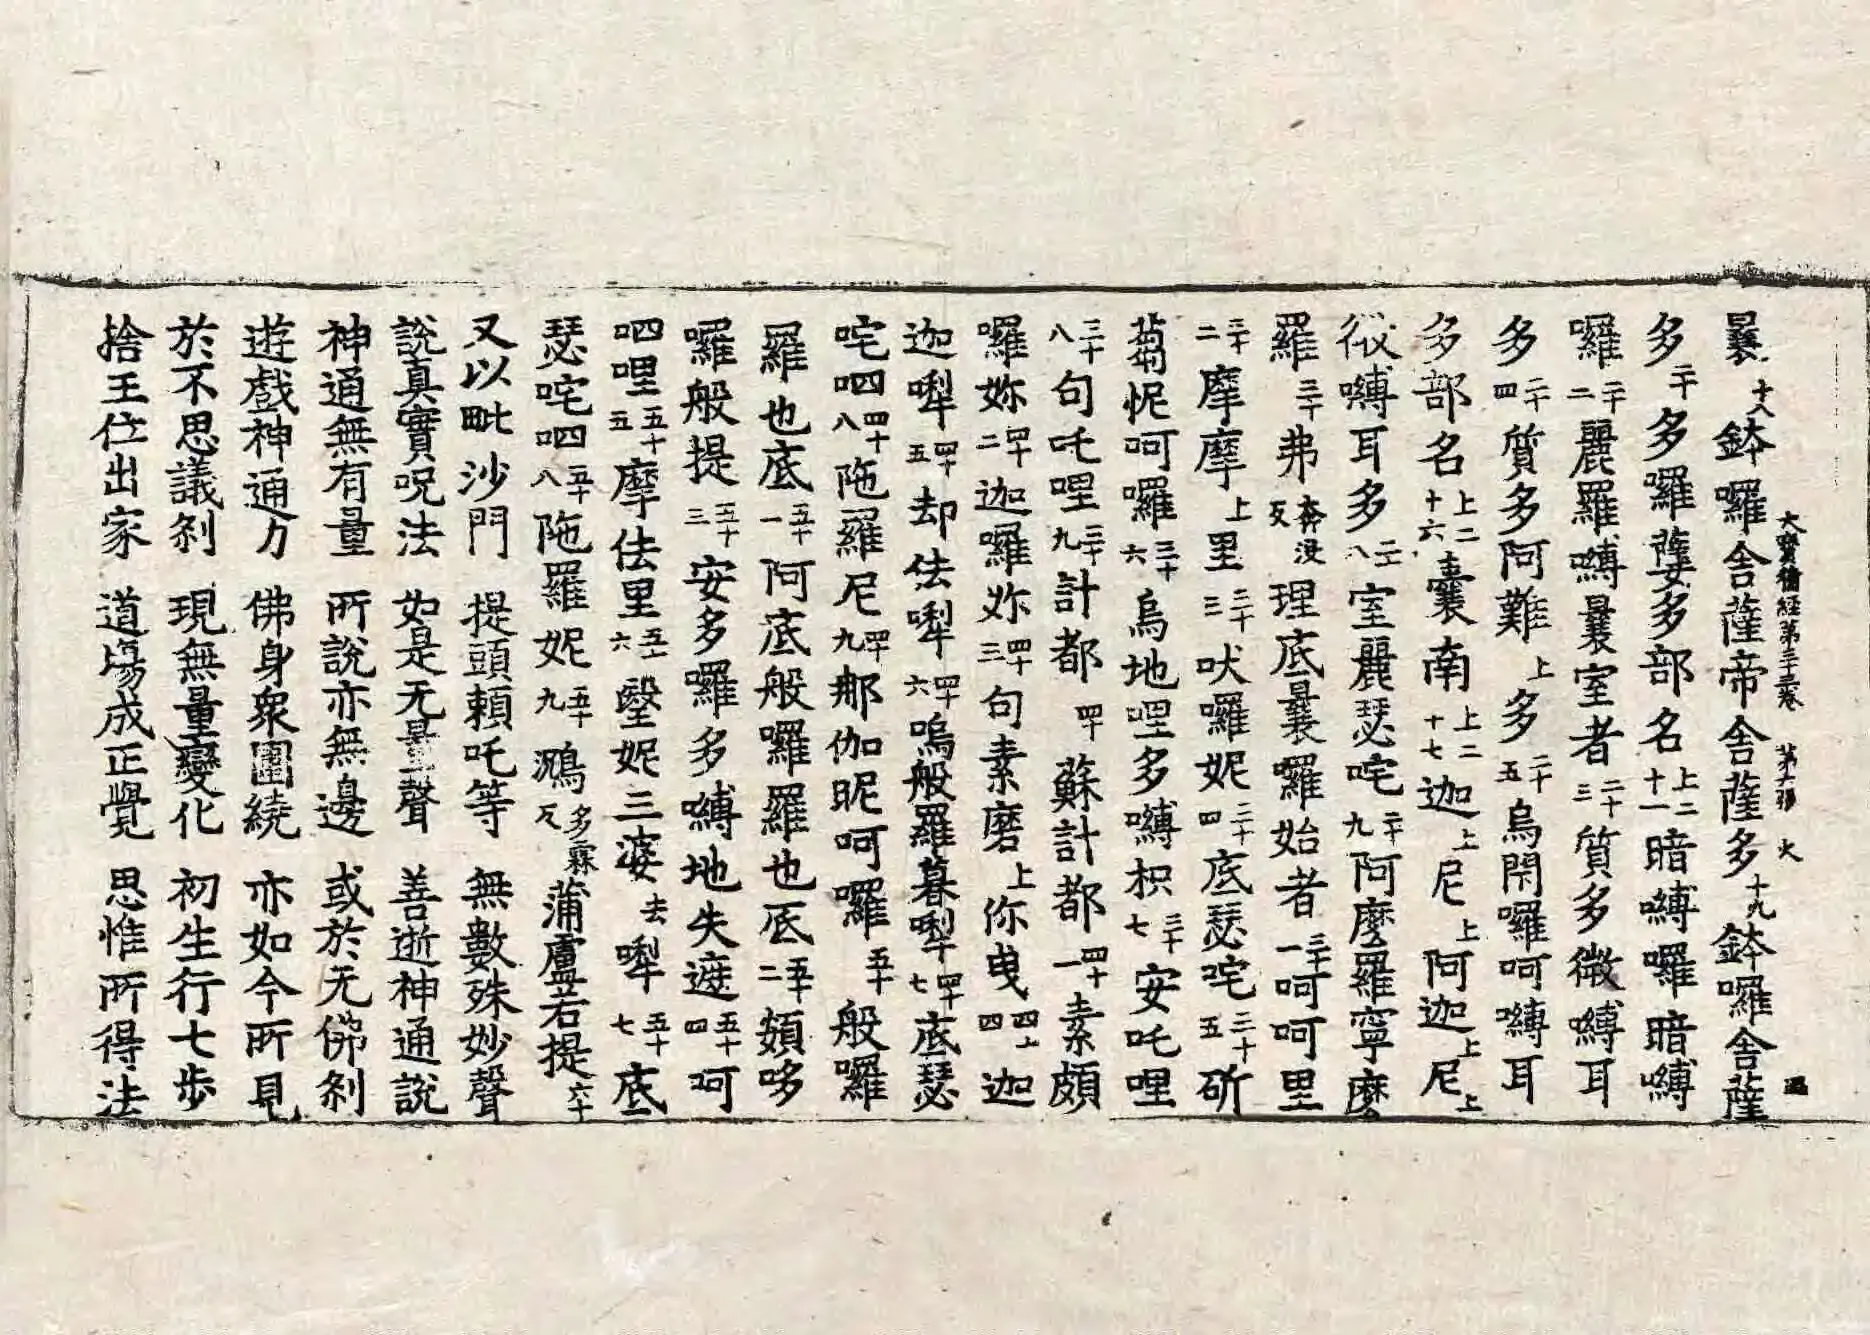 曩十八鉢囉舎薩帝舎薩多十九鉢囉舎薩
大寶積經第三十三卷 第六張 火
多二十多囉薩多部名上二十一暗嚩囉暗嚩
囉二十二麗羅嚩曩室者二十三質多微嚩耳
多二十四質多阿難上多二十五烏閇囉呵嚩耳
多部名上二十六曩南上二十七迦上尼上阿迦上尼上
微嚩耳多二八室麗瑟咤二十九阿麼羅寧麼
羅三十弗奔沒反理底曩囉始者三十一呵呵里
三十二摩摩上里三十三吠囉妮三十四底瑟咤三十五斫
蒭怩呵囉三十六烏地哩多嚩枳三十七安吒哩
三十八句吒哩三十九計都四十蘇計都四十一素頗
囉妳四十二迦囉妳四十三句素磨上你曵四十四迦
迦犁四十五却佉犁四十六嗚般羅暮犁四十七底瑟
咤呬四十八陁羅尼四十九那伽昵呵囉五十般囉
羅也底五十一阿底般囉羅也底五十二頞哆
囉般提五十三安多囉多嚩地失遮五十四呵
呬哩五十五摩佉里五十六醫妮三婆去犁五十七底
瑟咤呬五十八陁羅妮五十九鸂多霖反蒲盧若提六十
又以毗沙門 提頭頼吒等 無數殊妙聲
說真實呪法 如是无量聲 善逝神通說
神通無有量 所說亦無邊 或於无佛剎
遊戲神通力 佛身衆圍繞 亦如今所見
於不思議剎 現無量變化 初生行七步
捨王位出家 道場成正覺 思惟所得法